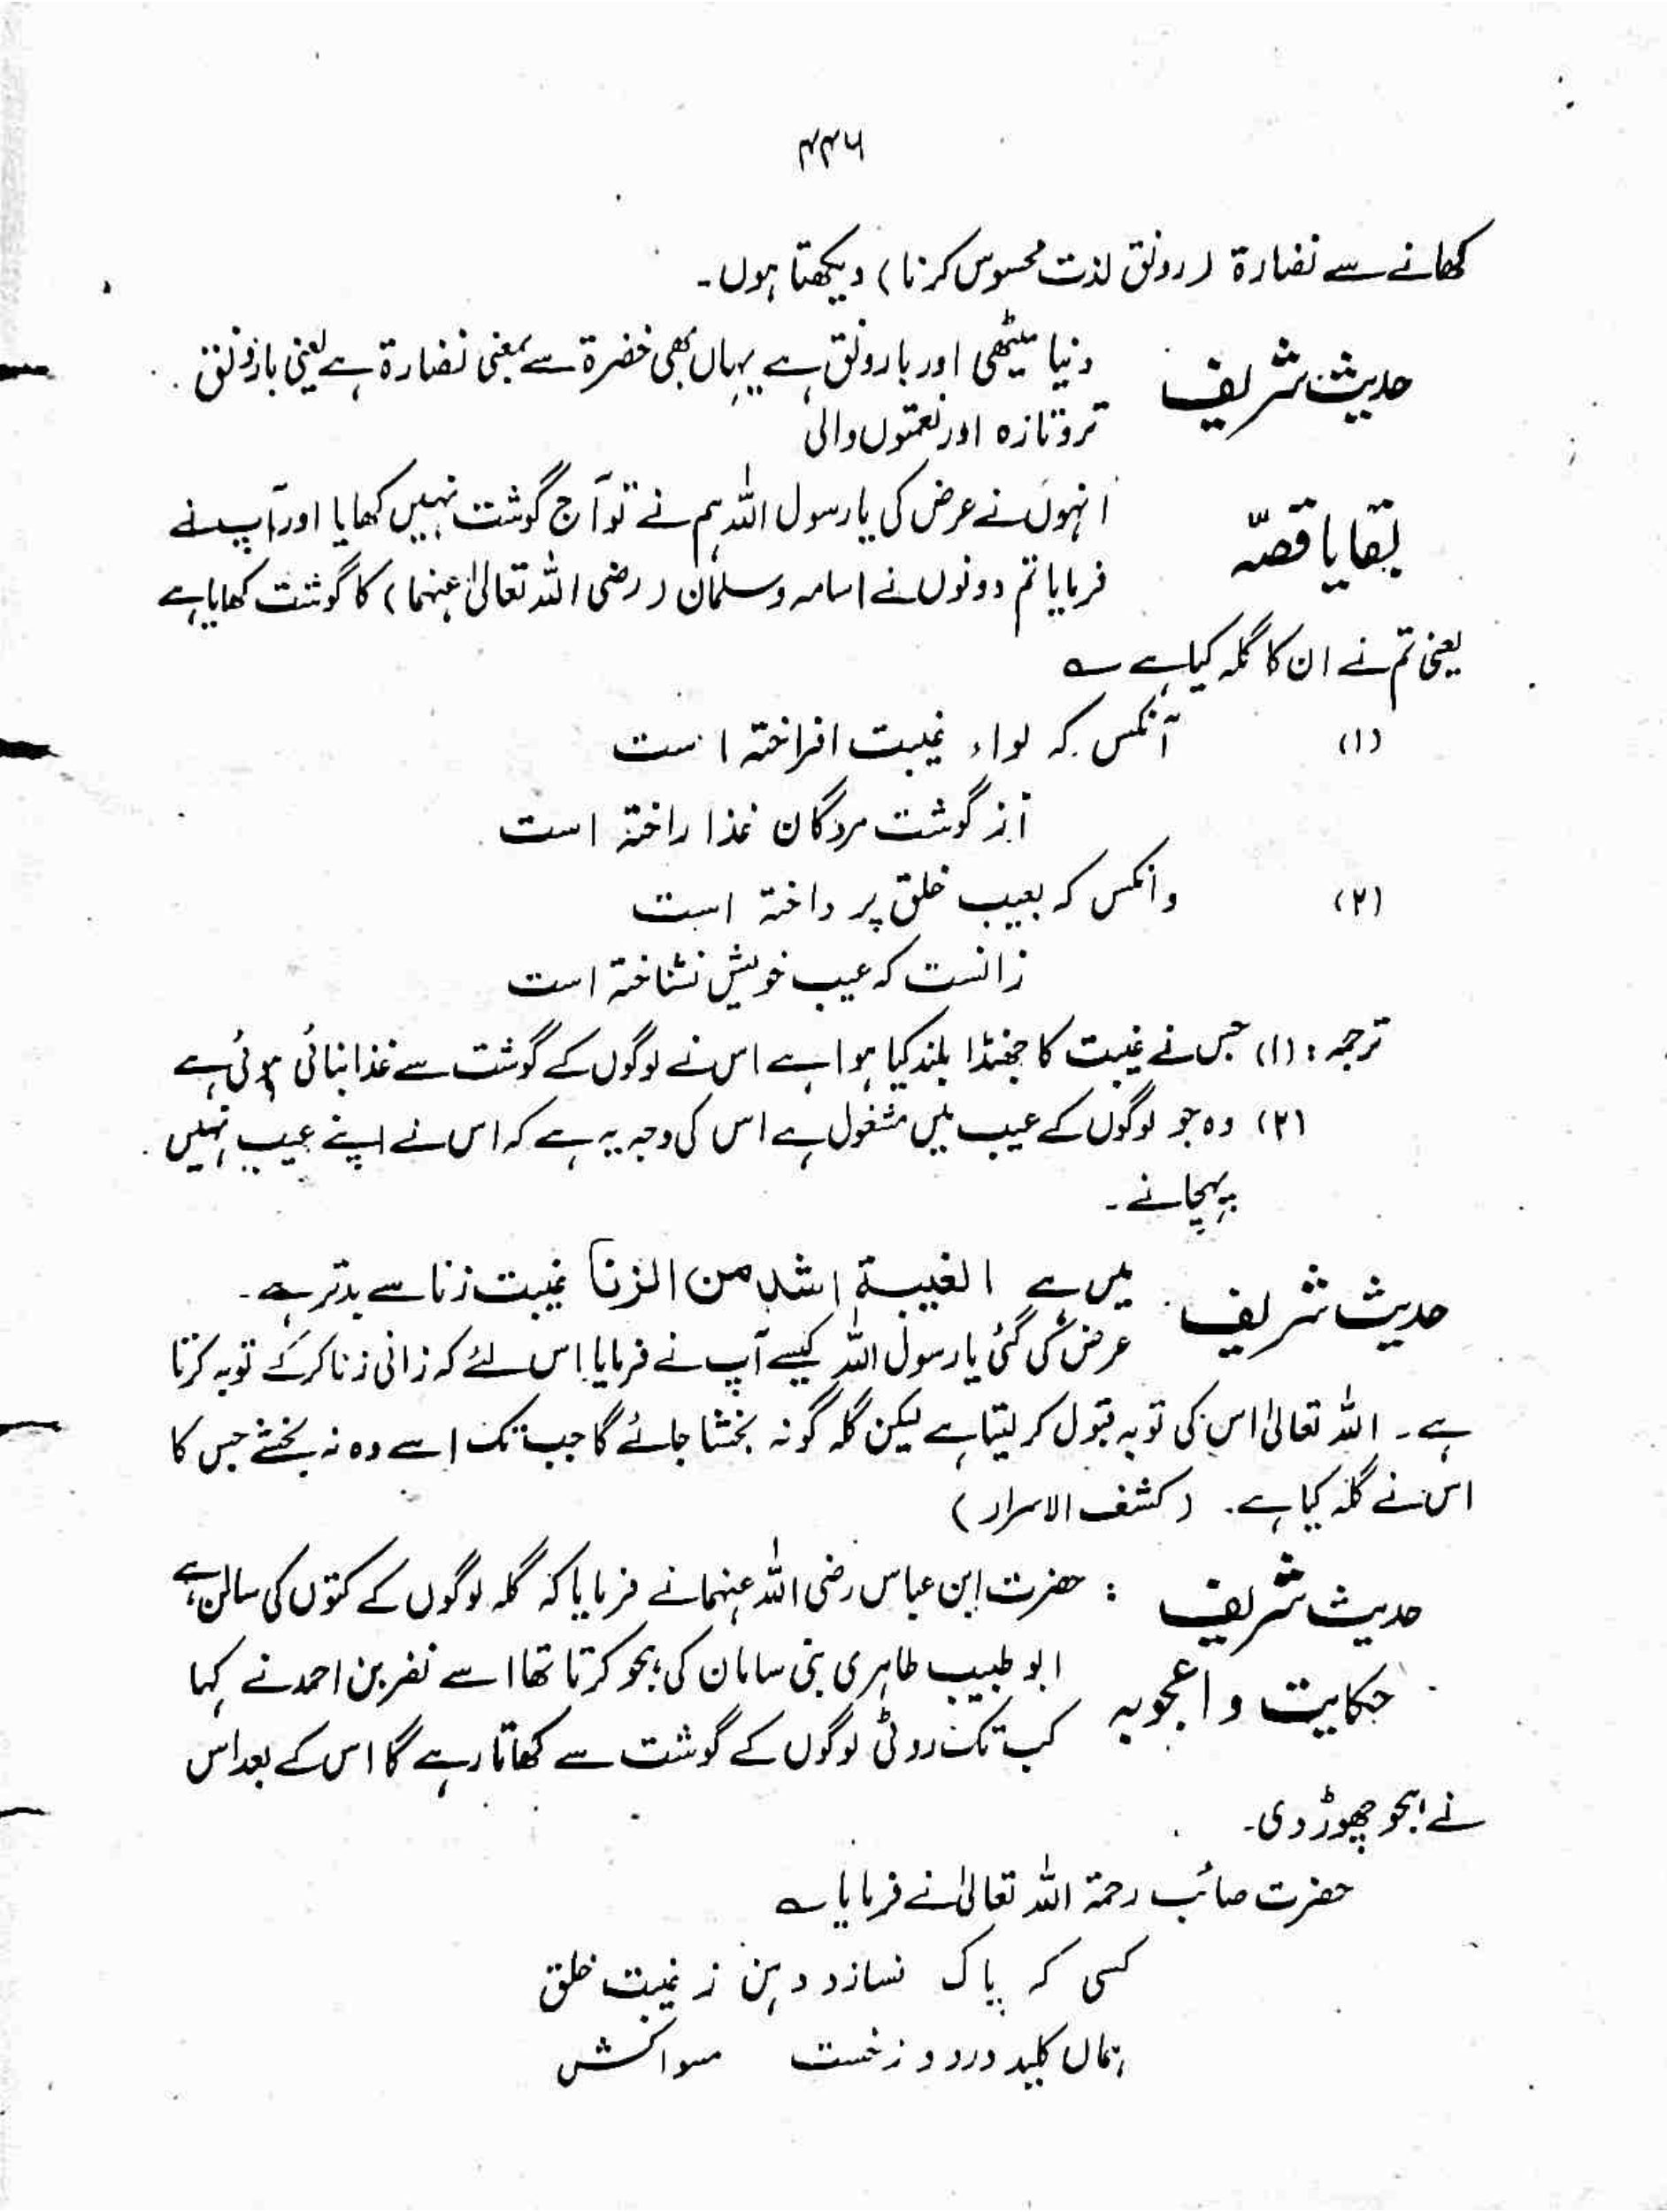 ۴۴۶
کھانے سے نضارۃ (رونق لذت محسوس کرنا) دیکھتا ہوں۔
حدیث شریف دنیا میٹھی اور بارونق ہے یہاں بھی خضرۃ سے بمعنی نضارۃ ہے یعنی بارونق
تروتازہ اور نعمتوں والی
بقایا قصّہ انہوں نے عرض کی یا رسول اللہ ہم نے تو آج گوشت نہیں کھایا اور آپ نے
فرمایا تم دونوں نے اسامہ وسلمان (رضی اللہ تعالیٰ عنہما) کا گوشت کھایا ہے
یعنی تم نے ان کا گلہ کیا ہے ؎
(۱) آنکس کہ لواء غیبت افراختہ است
از گوشت مردگان غذا راختہ است
(۲) وانکس کہ بعیب خلق پرداختہ است
زانست کہ عیب خویش نشاختہ است
ترجمہ: (۱) جس نے غیبت کا جھنڈا بلند کیا ہوا ہے اس نے لوگوں کے گوشت سے غذا بنائی ہوئی ہے
(۲) وہ جو لوگوں کے عیب میں مشغول ہے اس کی وجہ یہ ہے کہ اس نے اپنے عیب نہیں
پہچانے۔
حدیث شریف میں ہے الغیبۃ اشد من الزنا غیبت زنا سے بدتر ہے۔
عرض کی گئی یا رسول اللہ کیسے آپ نے فرمایا اس لئے کہ زانی زنا کرکے توبہ کرتا
ہے۔ اللہ تعالیٰ اس کی توبہ قبول کر لیتا ہے لیکن گلہ گو نہ بخشا جائے گا جب تک اسے وہ نہ بخشے جس کا
اس نے گلہ کیا ہے۔ (کشف الاسرار)
حدیث شریف : حضرت ابن عباس رضی اللہ عنہما نے فرمایا کہ گلہ لوگوں کے کتوں کی سالن ہے
حکایت و اعجوبہ ابو طبیب طاہری بنی سامان کی ہجو کرتا تھا اسے نصر بن احمد نے کہا
کب تک روٹی لوگوں کے گوشت سے کھاتا رہے گا اس کے بعد اس
نے ہجو چھوڑ دی۔
حضرت صائب رحمۃ اللہ تعالیٰ نے فرمایا ؎
کسی کہ پاک نسازد دہن ز غیبت خلق
ہماں کلید در دوزخست مسواکش